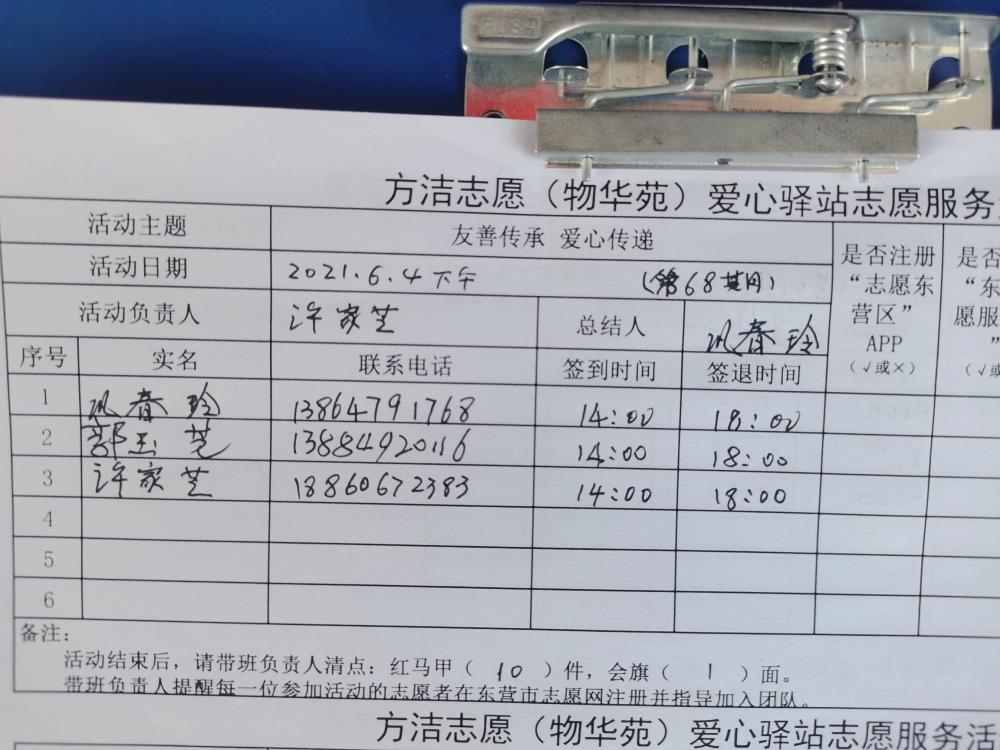 方洁志愿（物华苑）爱心驿站志愿服务活
活动主题 友善传承 爱心传递 是否注册“志愿东营区”APP（√或×） 是否“东 愿服 ”（√或
活动日期 2021.6.4下午 （第68期）
活动负责人 许家芝 总结人 巩春玲
序号 实名 联系电话 签到时间 签退时间
1 巩春玲 13864791768 14:00 18:00
2 郭玉芝 13884920116 14:00 18:00
3 许家芝 18860672383 14:00 18:00
4
5
6
备注：
活动结束后，请带班负责人清点：红马甲（ 10 ）件，会旗（ 1 ）面。
带班负责人提醒每一位参加活动的志愿者在东营市志愿网注册并指导加入团队。
方洁志愿（物华苑）爱心驿站志愿服务活